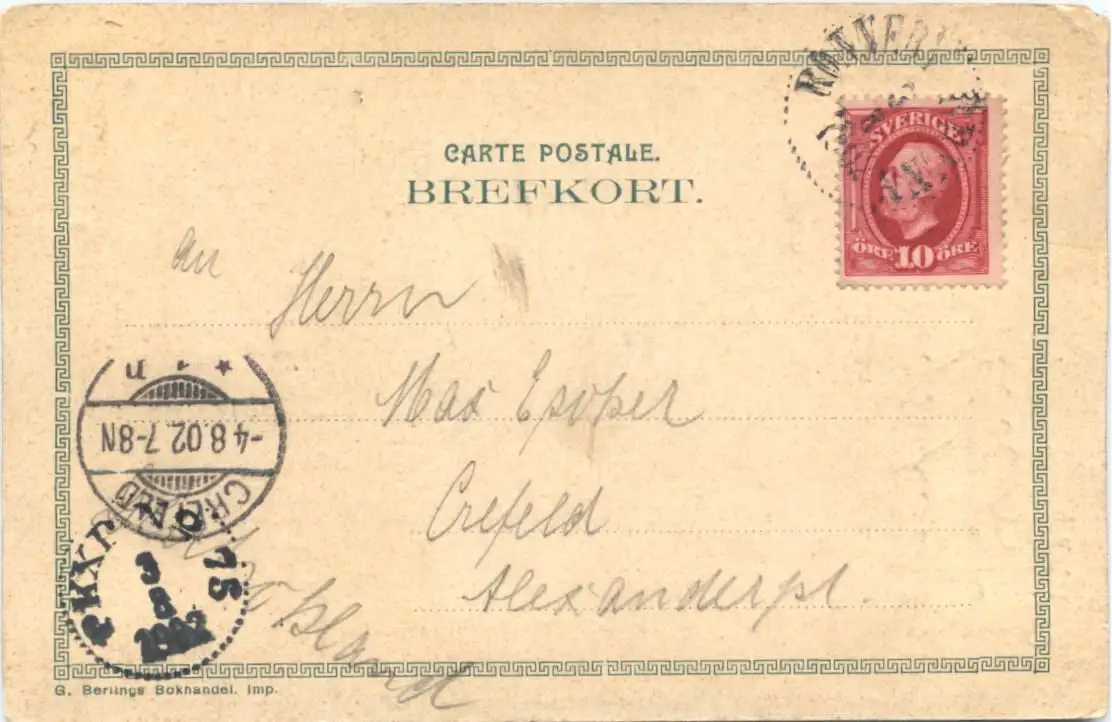 CARTE POSTALE.
BREFKORT.
SVERIGE
ÖRE 10 ÖRE
An
Herrn
Max
Crefeld
Alexanderpl.
CREFELD
-4.8.02.7-8N
3
8
1902
G. Berlings Bokhandel. Imp.